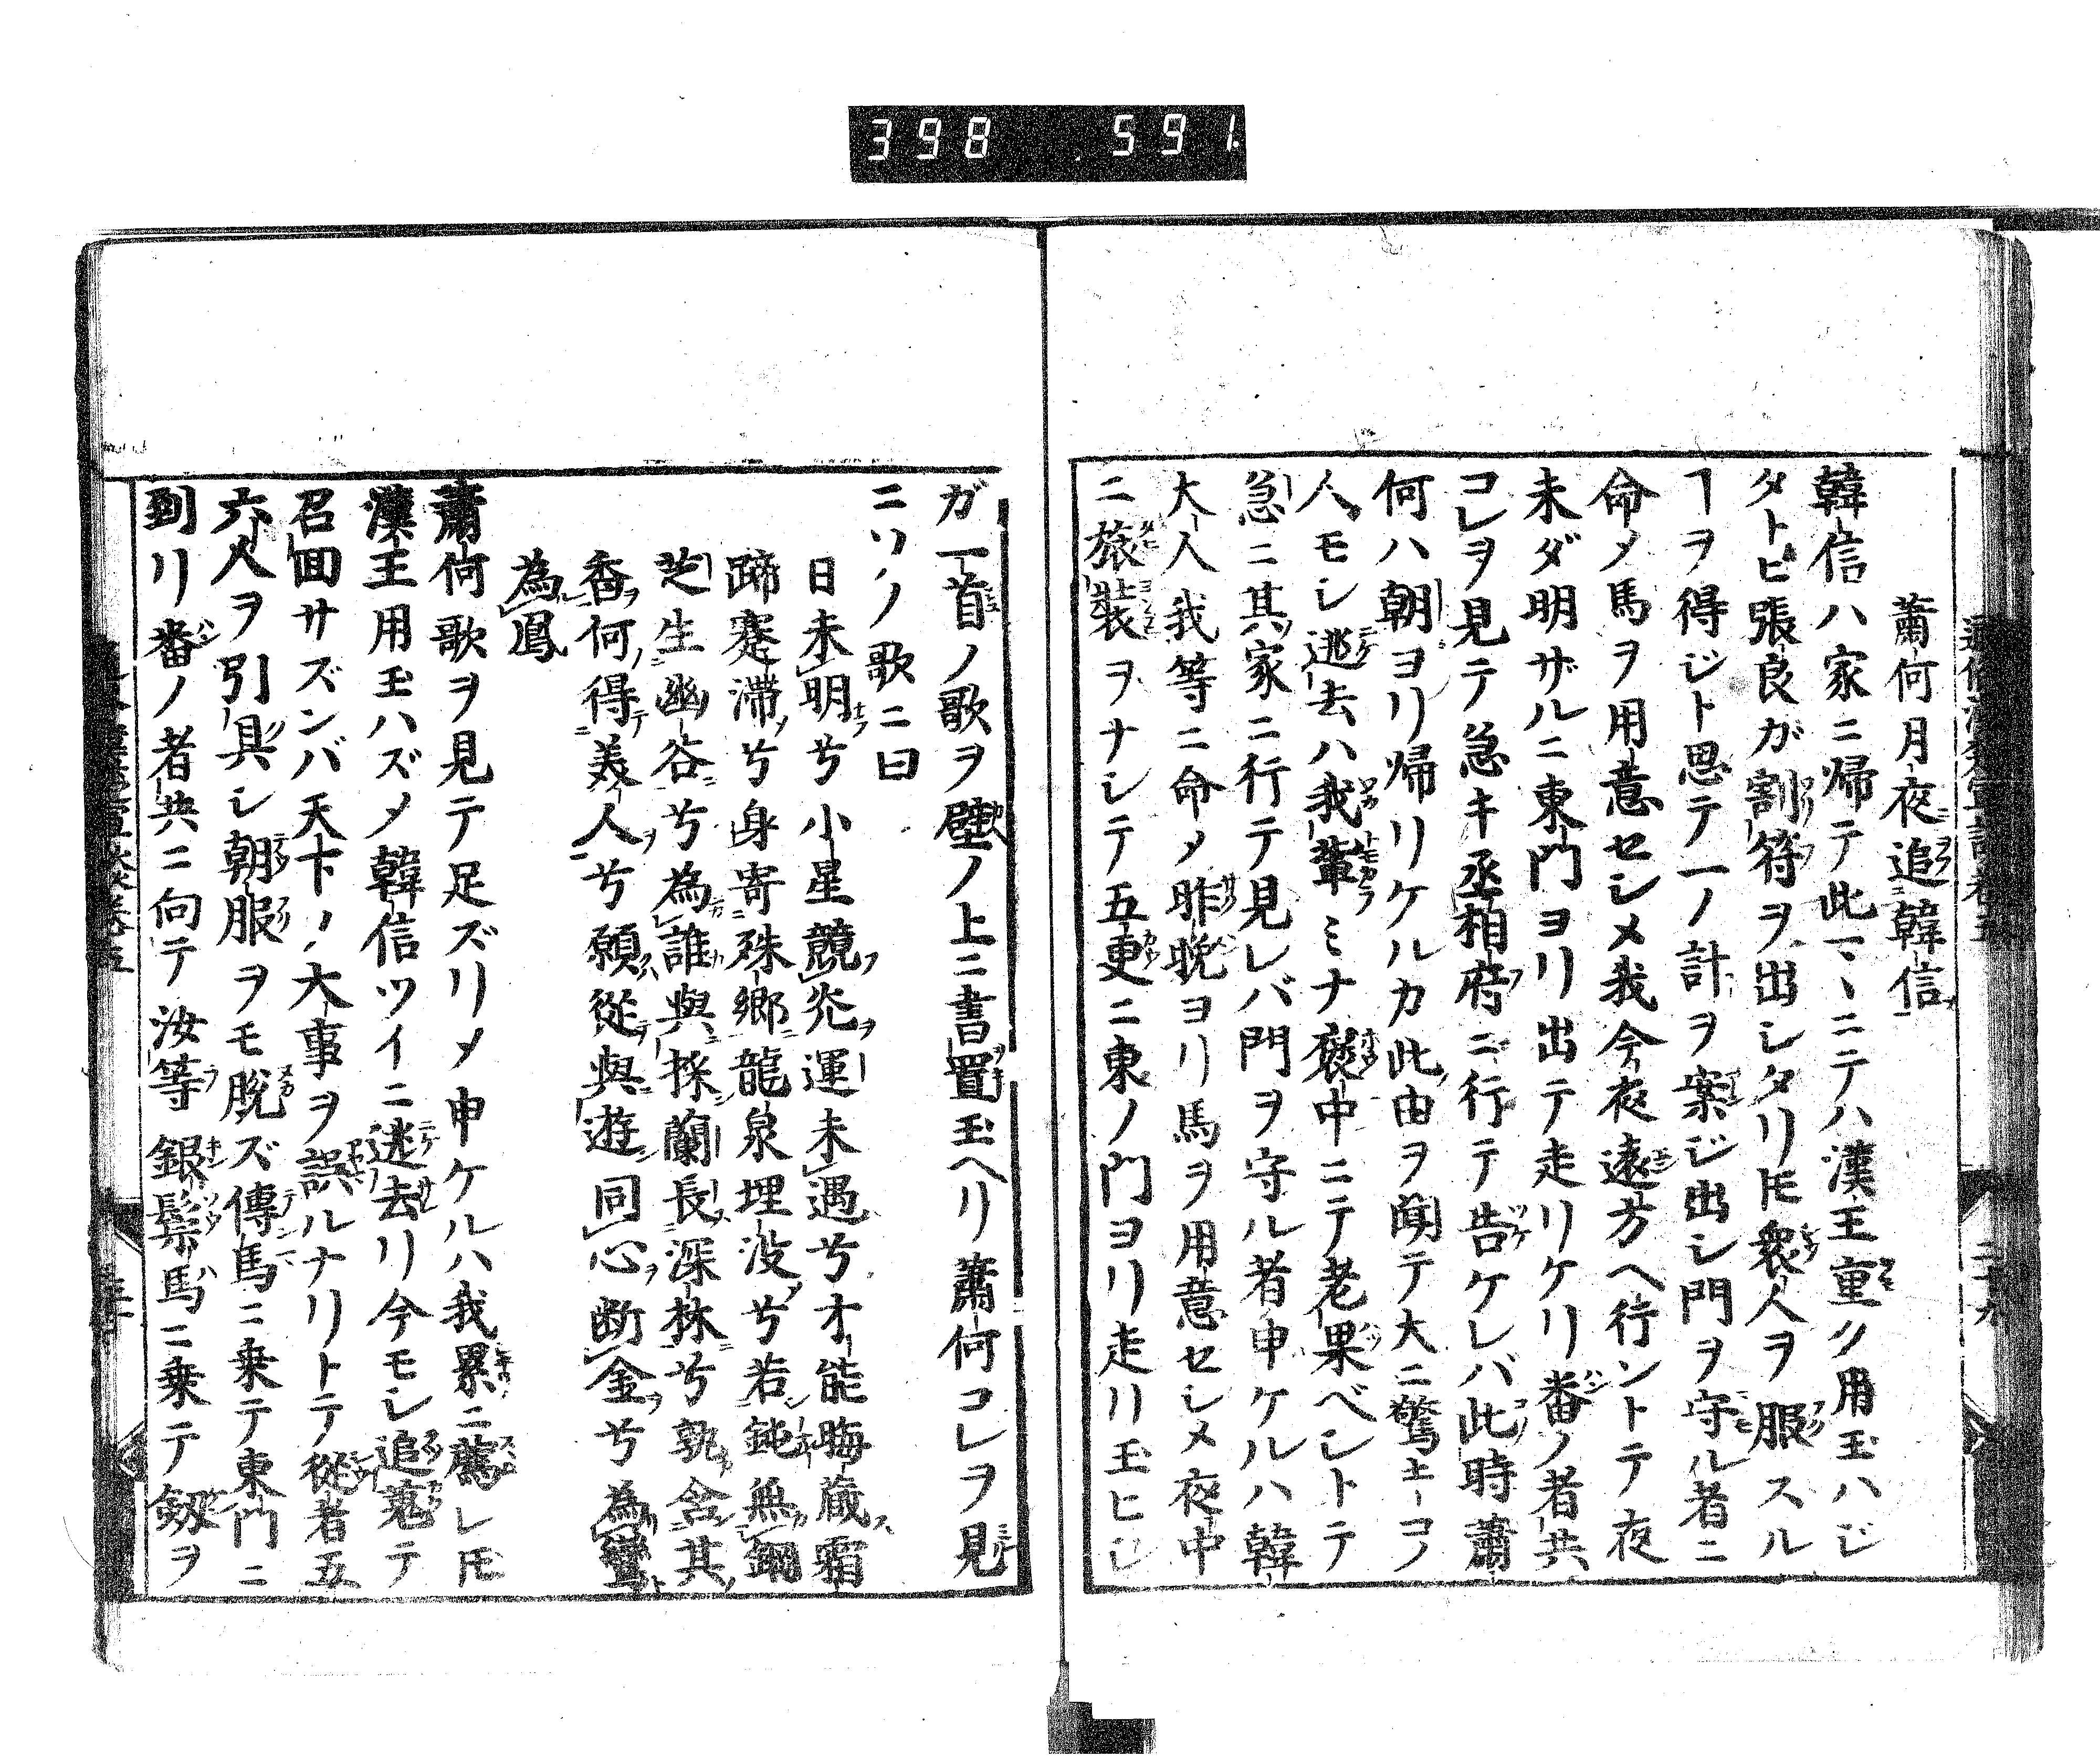 398 591
蕭何月夜追韓信
韓信ハ家ニ帰テ此マヽニテハ漢王重ク用玉ハジ
タトヒ張良ガ割符ヲ出シタリ𪜈衆人ヲ服スル
ヿヲ得ジト思テ一ノ計ヲ案ジ出シ門ヲ守ル者ニ
命メ馬ヲ用意セシメ我今夜遠方ヘ行ントテ夜
未ダ明ザルニ東門ヨリ出テ走リケリ番ノ者共
コレヲ見テ急キ丞相府ニ行テ告ケレバ此時蕭
何ハ朝ヨリ帰リケルカ此由ヲ聞テ大ニ驚キコノ
人モシ逃去ハ我輩ミナ襃中ニテ老果ベシトテ
急ニ其家ニ行テ見レバ門ヲ守ル者申ケルハ韓
大人我等ニ命メ昨晩ヨリ馬ヲ用意セシメ夜中
ニ旅裝ヲナシテ五更ニ東ノ門ヨリ走リ玉ヒシ
ガ一首ノ歌ヲ壁ノ上ニ書置玉ヘリ蕭何コレヲ見
ニソノ歌ニ曰
日未明兮小星競光運未遇兮才能晦蔵霜
蹄蹇滞兮身寄殊郷龍泉埋没兮若鈍無鋼
芝生幽谷兮為誰與採蘭長深林兮孰含其
香何得美人兮願從與遊同心断金兮為鸞
為鳳
蕭何歌ヲ見テ足ズリメ申ケルハ我累ニ薦レ𪜈
漢王用玉ハズメ韓信ツイニ逃去リ今モシ追蒐テ
召回サズンバ天下ノ大事ヲ誤ルナリトテ從者五
六人ヲ引具シ朝服ヲモ脱ズ傳馬ニ乗テ東門ニ
到リ番ノ者共ニ向テ汝等銀鬃馬ニ乗テ劔ヲ